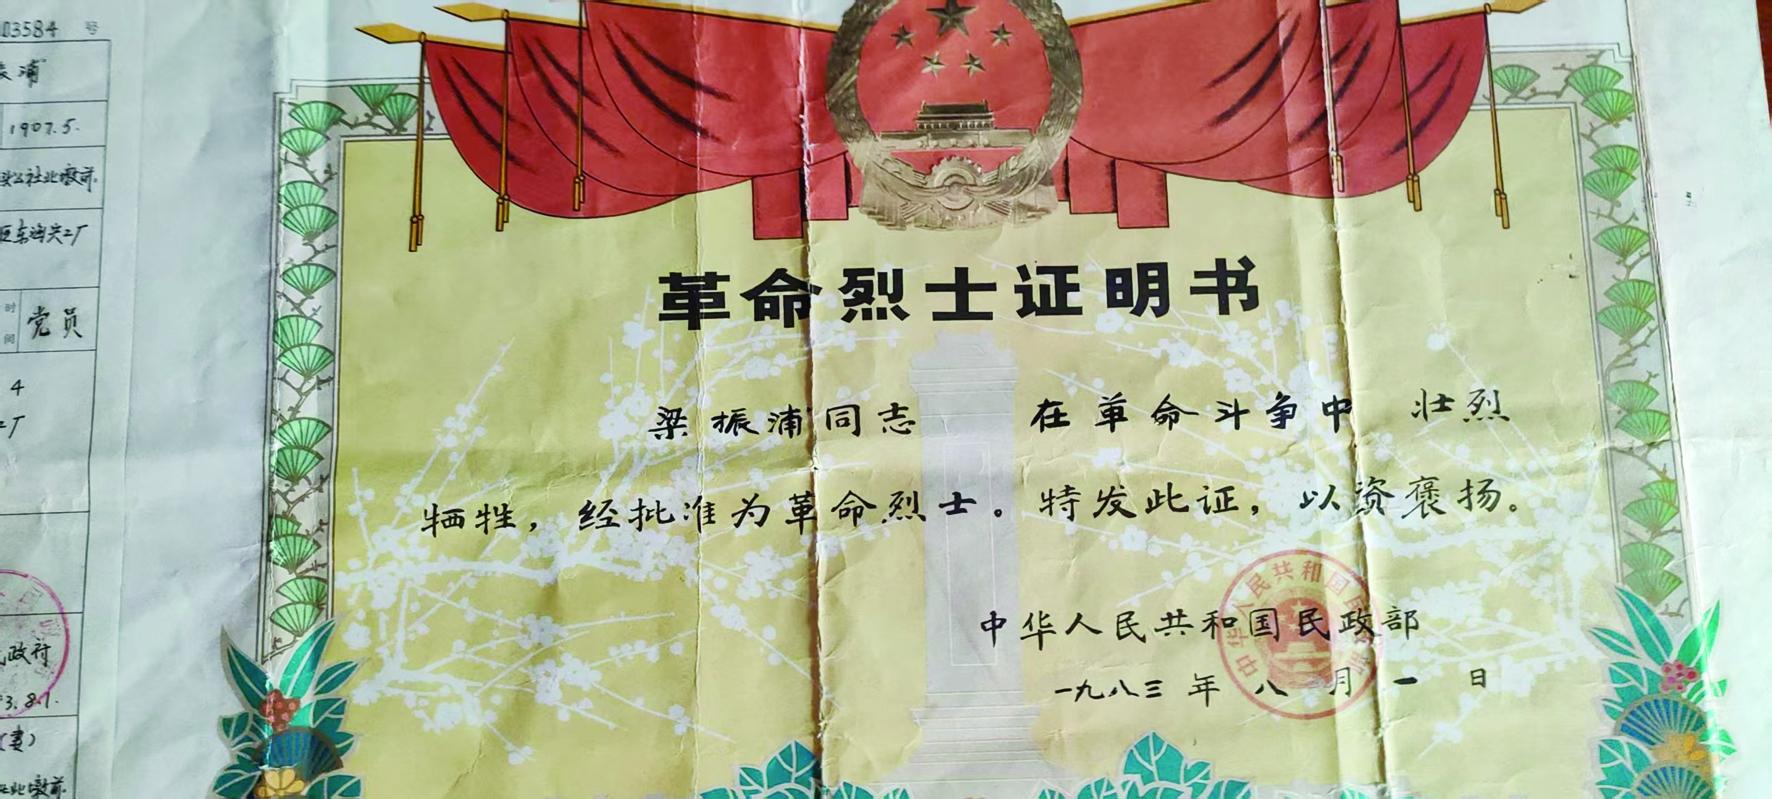 03584 号
振浦
1907.5.
头公社北墩前
东海兵工厂
时间 党员
4
工厂
民政府
3.8.1.
(妻)
北墩前
革命烈士证明书
梁振浦同志 在革命斗争中 壮烈
牺牲，经批准为革命烈士。特发此证，以资褒扬。
中华人民共和国民政部
一九八三年八月一日
中华人民共和国民政部